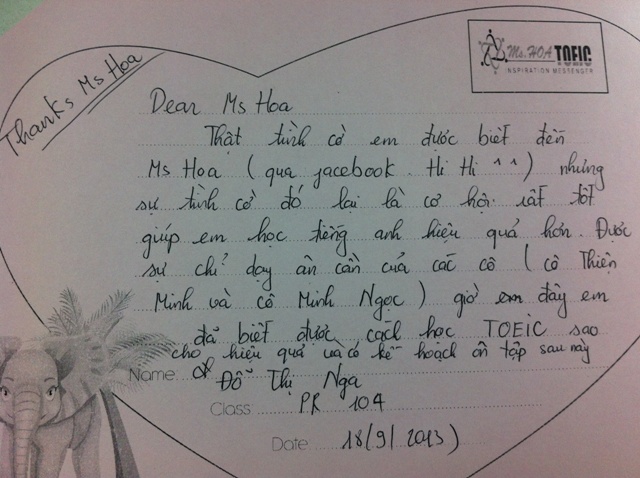 Thanks Ms Hoa
Ms. HOA TOEIC
INSPIRATION MESSENGER
Dear Ms Hoa
Thật tình cờ em được biết đến
Ms Hoa ( qua facebook. Hi Hi ^^ ) nhưng
sự tình cờ đó lại là cơ hội rất tốt
giúp em học tiếng anh hiệu quả hơn. Được
sự chỉ dạy ân cần của các cô ( cô Thiên
Minh và cô Minh Ngọc ) giờ em đây em
đã biết được cách học TOEIC sao
cho hiệu quả và có kế hoạch ôn tập sau này
Name Đỗ Thị Nga
Class PR 104
Date 18/9/2013)